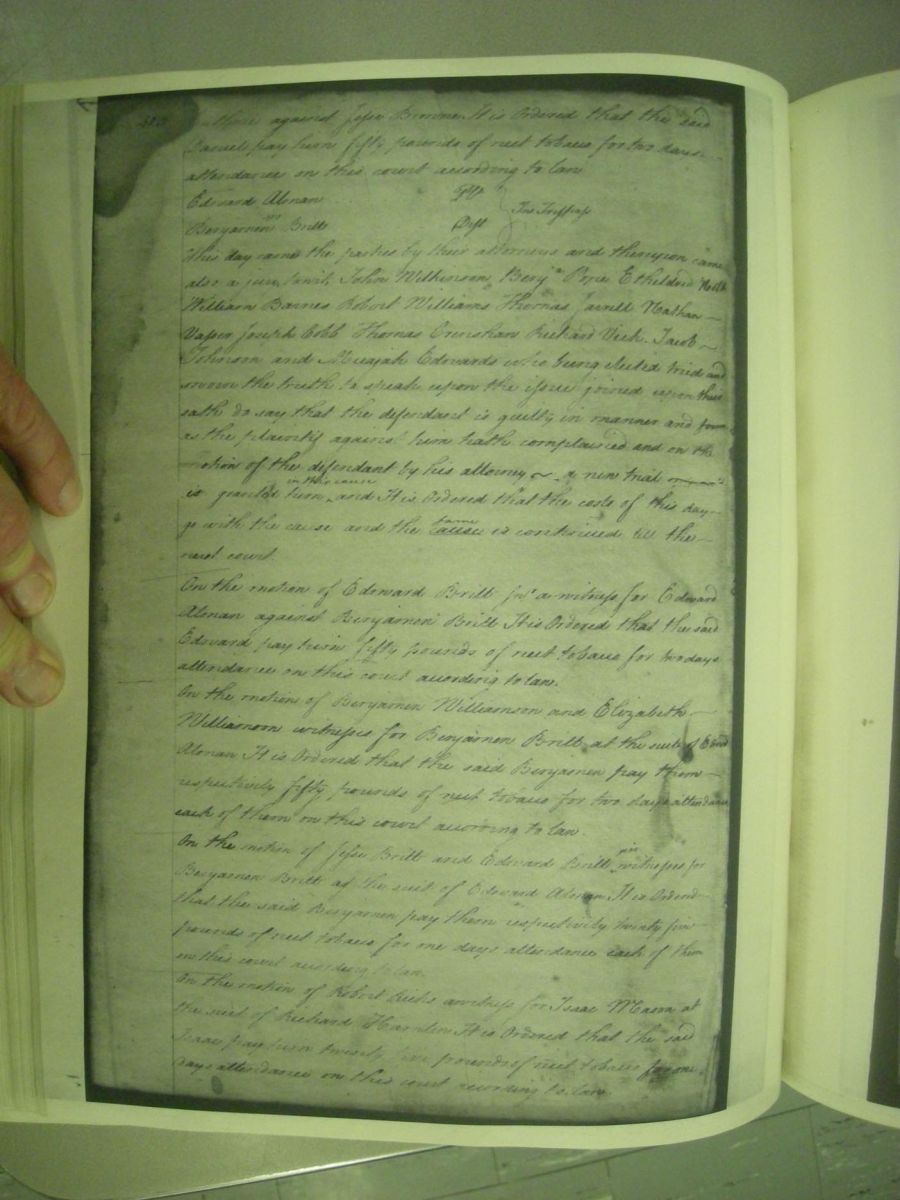 against Jesse Browne It is Ordered that the said
pay him fifty pounds of neet tobacco for two days
attendance on this court according to law
Edward Alman Plt
In Trespass
Benjamin Britt Deft
This day came the parties by their attorneys and thereupon came
also a jury towit, John Wilkinson, Benja Pope Etheldred
William Barnes Robert Williams Thomas Jarrell Nathan
Vasser Joseph Cobb Thomas Crenshaw Richard Vick Jacob
Johnson and Micajah Edwards who being elected tried and
sworn the truth to speak upon the issue joined upon their
oath do say that the defendant is guilty in manner and form
as the plaintif against him hath complained and on the
motion of the defendant by his attorney a new trial
in this cause
is granted him and It is Ordered that the costs of this day
same
go with the cause and the cause is continued till the
next court.
On the motion of Edward Britt junr a witness for Edward
Alman against Benjamin Britt It is Ordered that the said
Edward pay him fifty pounds of neet tobacco for two days
attendance on this court according to law.
On the motion of Benjamin Williamson and Elizabeth
Williamson witnesses for Benjamin Britt at the suit of Edward
Alman It is Ordered that the said Benjamen pay them
respectively fifty pounds of neet tobacco for two days attendance
each of them on this court according to law.
On the motion of Jesse Britt and Edward Britt witnesses for
Benjamen Britt at the suit of Edward Alman It is Ordered
that the said Benjamen pay them respectively twenty five
pounds of neet tobacco for one days attendance each of them
on this court according to law.
On the motion of Robert Ricks a witness for Isaac Macon at
the suit of Richard It is Ordered that the said
Isaac pay him twenty five pounds of neet tobacco for one
days attendance on this court according to law.